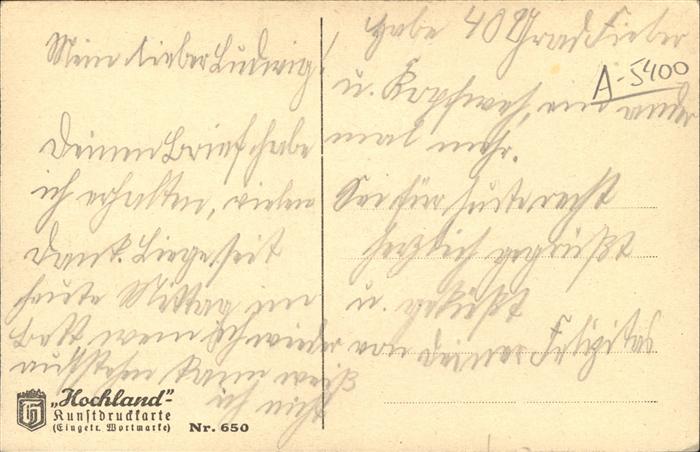 Mein lieber Ludwig!
Deinen Brief habe
ich erhalten, vielen
Dank. Liege seit
heute Mittag im
Bett, wenn ich wieder
aufstehen kann weiß
ich nicht
habe 40° Grad Fieber
u. Kopfweh, ein ander
mal mehr.
Sei für heute recht
herzlich gegrüßt
u. geküßt
von deiner Felizitas
A-5400
„Hochland"-
Kunstdruckkarte
(Eingetr. Wortmarke) Nr. 650